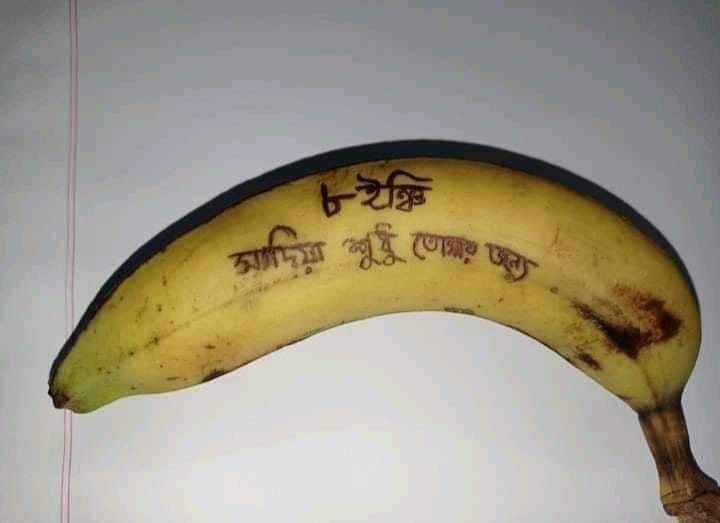 ৮ ইঞ্চি
সাদিয়া শুধু তোমার জন্য